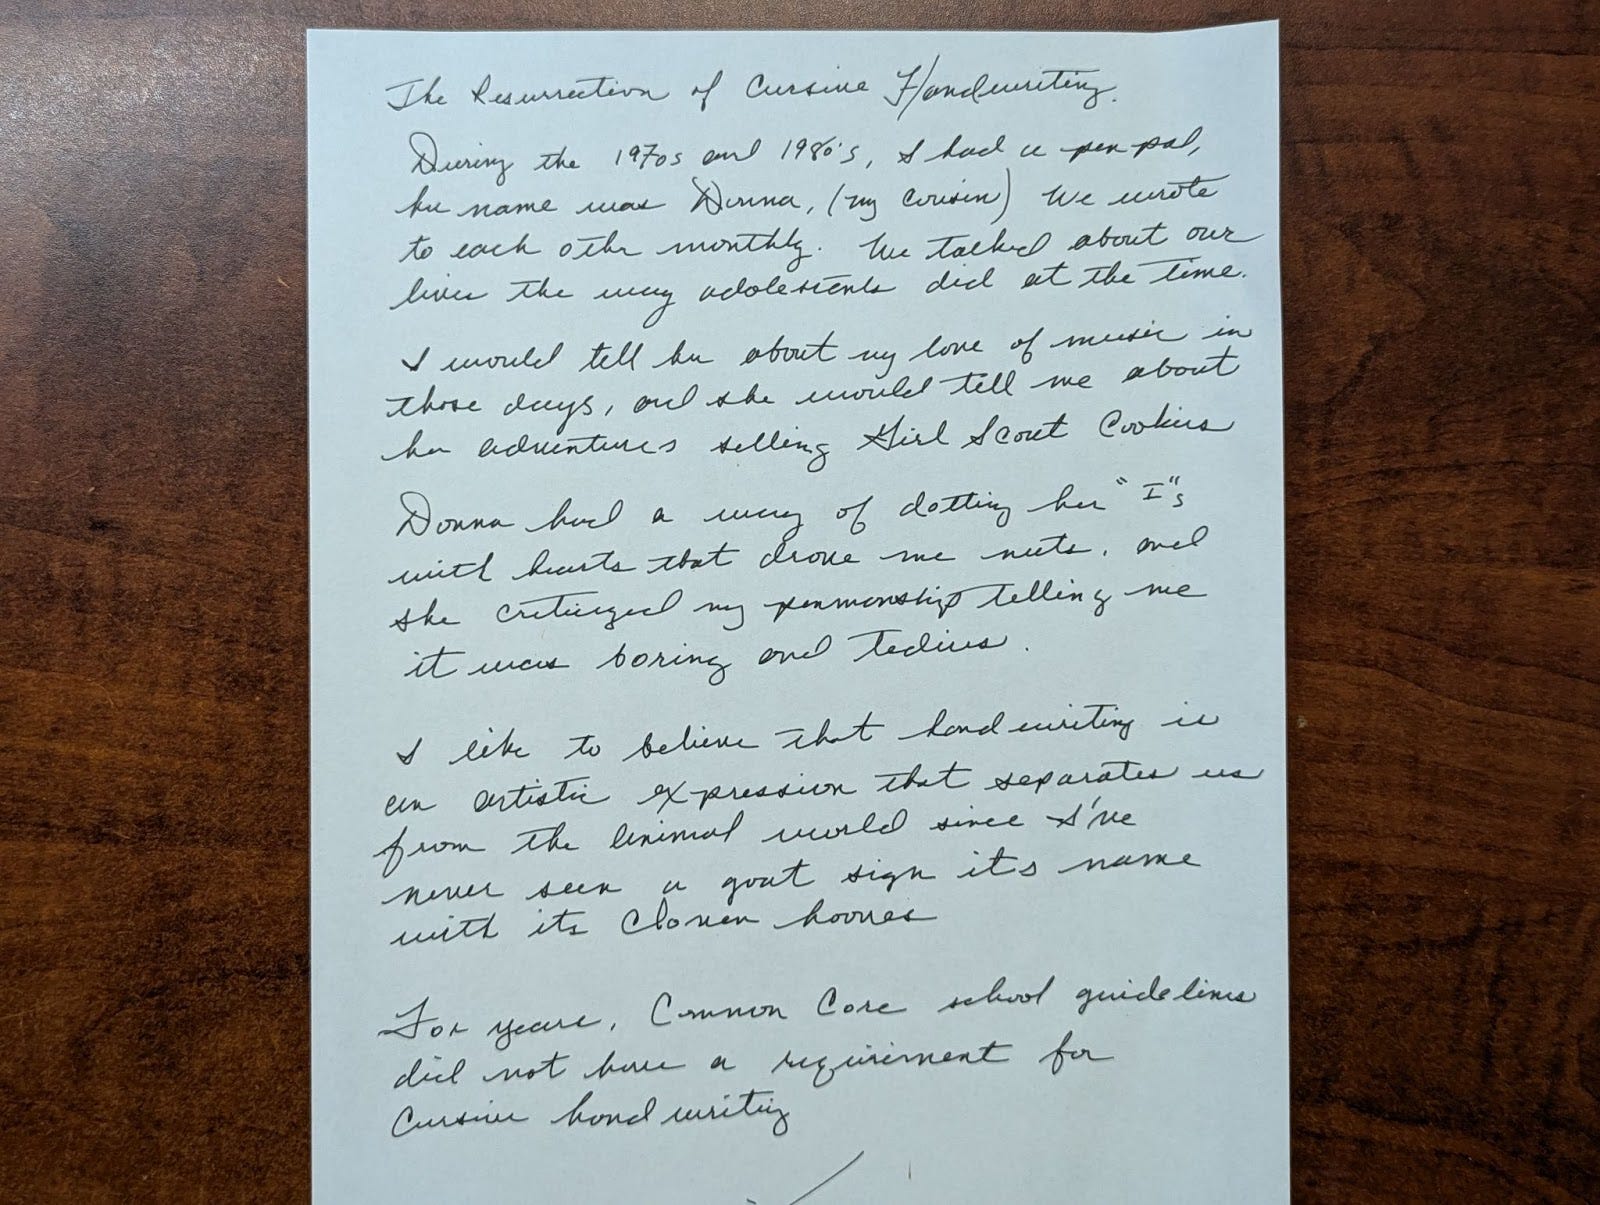 The Resurrection of Cursive Handwriting.
During the 1970s and 1980's, I had a pen pal,
her name was Donna, (my cousin) We wrote
to each other monthly. We talked about our
lives the way adolescents did at the time.
I would tell her about my love of music in
those days, and she would tell me about
her adventures selling Girl Scout Cookies
Donna had a way of dotting her "I"s
with hearts that drove me nuts, and
she critiqued my penmanship telling me
it was boring and tedius.
I like to believe that handwriting is
an artistic expression that separates us
from the animal world since I've
never seen a goat sign its name
with its cloven hooves
For years, Common Core school guidelines
did not have a requirement for
Cursive handwriting